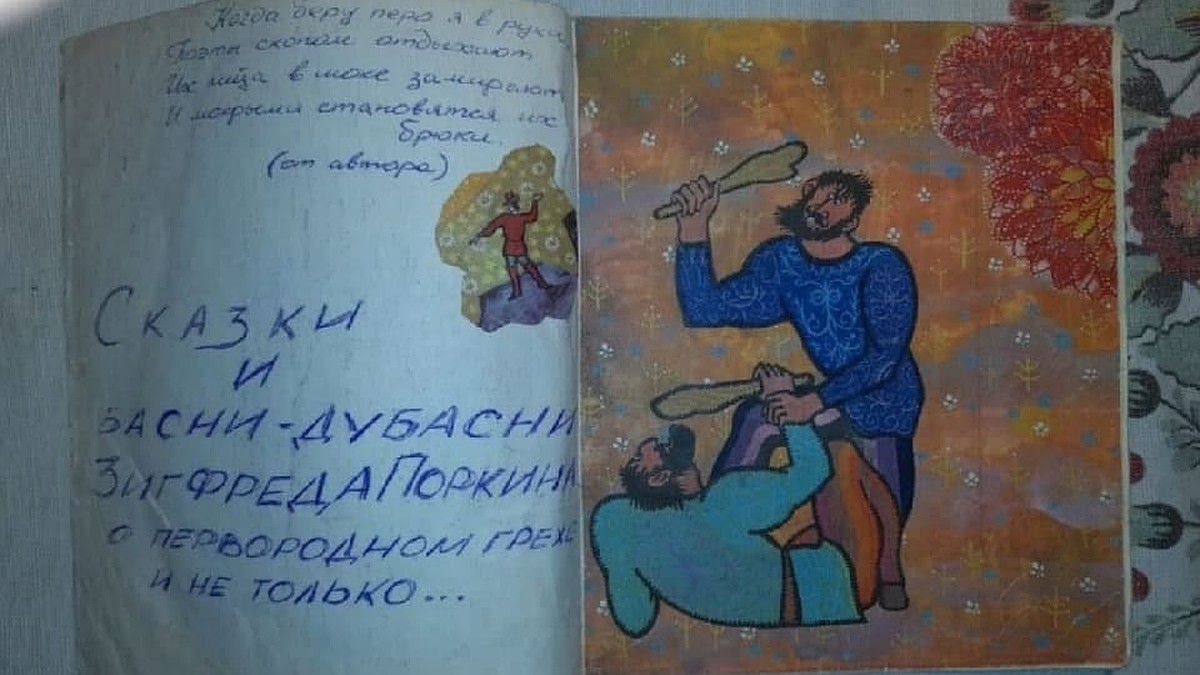 Когда беру перо я в руки
Поэты скопом отдыхают
Их лица в шоке замирают
И мокрыми становятся их
брюки.
(от автора)
Сказки
и
басни-дубасни
Зигфреда Поркина
о первородном грехе
и не только...